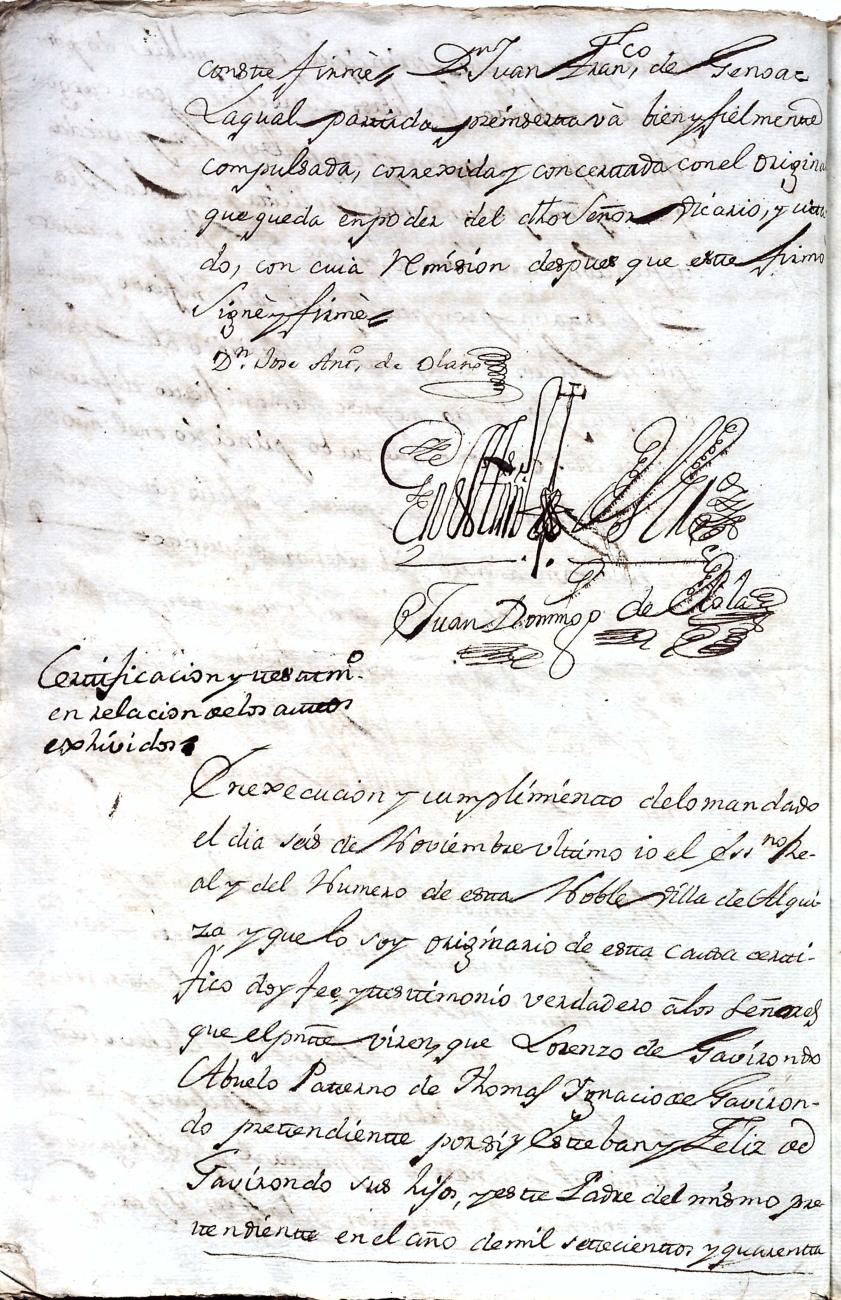 conste firmè, Dn. Juan Franco. de Genoa=
Laqual partida preinserta và bien y fielmente
compulsada, correxida y concertada con el origina
que queda en poder del dho Señor Vicario, y cita
do, con cuia remision despues que este firmò
Signè y firmè
Dn. Jose Anto. de Olano
En testimo de Verd
Juan Domingo de
Certificacion y testimo.
en relacion de los autos
exhividos
En execucion y cumplimiento delo mandado
el dia seis de Noviembre ultimo io el Essno Re-
al y del Numero de esta Noble Villa de Alqui-
za y que lo soy originario de esta causa certi-
fico doy fee, y testimonio verdadero à los Señores
que el pnte vieren, que Lorenzo de Gavirondo
Abuelo Paterno de Thomas Ygnacio de Gaviron-
do pretendiente por si y Esteban y Feliz de
Gavirondo sus hijos, y este Padre del mismo pre
tendiente en el año de mil setecientos y quarenta